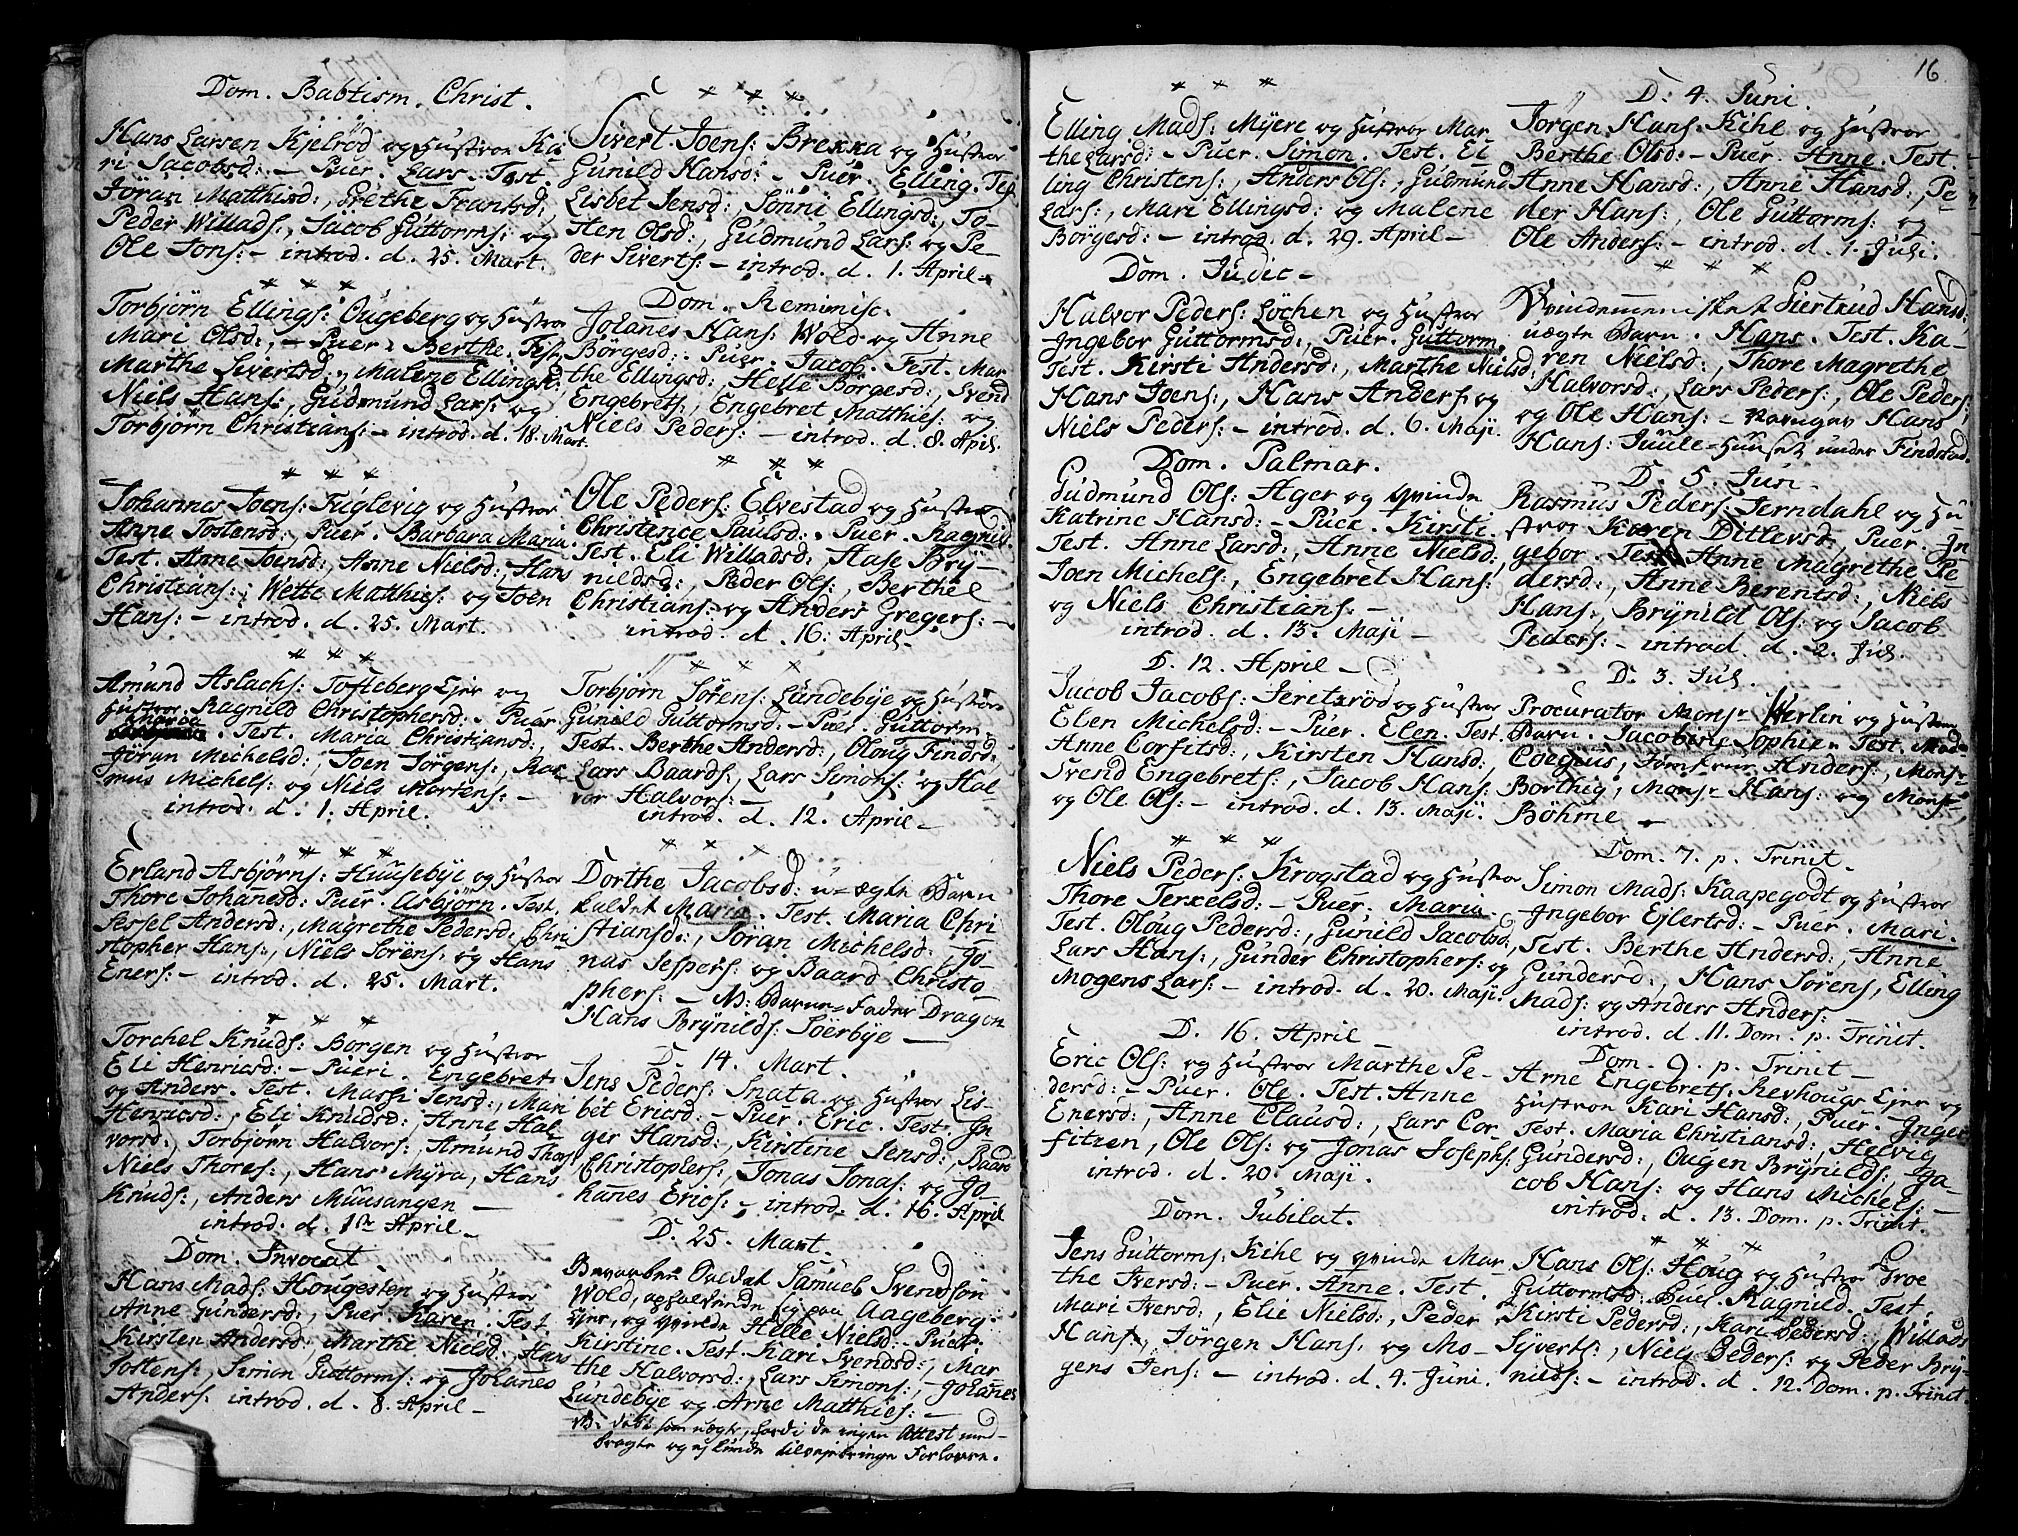 Dom. Babtism. Christ.
Hans Larsen Kjelrød og Hustroe Ka-
ri Jacobsd: - Puer. Lars. Test.
Jøran Matthisd:, Grethe Frantsd:,
Peder Willads:, Jacob Guttorms: og
Ole Jons: - introd. d. 25. Mart.
* * *
Torbjørn Ellings: Ougeberg og Hustroe
Mari Olsd:, - Puer. Berthe. Test.
Marthe Sivertsd:, Malene Ellingsd:,
Niels Hans:, Gudmund Lars: og
Torbjørn Christians: - introd. d. 18. Mart.
* * *
Johannes Joens: Fuglevig og Hustroe
Anne Tostensd:, Puer. Barbara Maria.
Test. Anne Joensd:, Anne Nielsd:, Hans
Christians:, Wette Matthies: og Joen
Hans: - introd. d. 25. Mart.
* * *
Amund Aslachs: Tofteberg Ejer og
Hustroe Ragnild Christophersd: - Puer.
Maria. Test. Maria Christiansd:,
Jøran Michelsd:, Joen Jørgens:, Ras-
mus Michels: og Niels Mortens: -
introd. d. 1. April.
* * *
Erland Asbjørns: Huusebye og Hustroe
Thore Johanesd: Puer. Asbjørn. Test.
Sessel Andersd:, Magrethe Pedersd:, Chri-
stopher Hans:, Niels Sørens: og Hans
Eners: - introd. d. 25. Mart.
* * *
Torchel Knuds: Borgen og Hustroe
Eli Henricsd: - Pueri. Engebret
og Anders. Test. Marthi Jensd:, Mari
Henricsd:, Eli Knudsd:, Anne Hal-
vorsd:, Torbjørn Halvors:, Amund Thors:
Niels Thores:, Hans Myra, Hans
Knuds:, Anders Muusangen -
introd. d. 1ste April -
Dom. Invocat.
Hans Mads: Hougesten og Hustroe
Anne Gundersd:, Puer. Karen. Test.
Kirsten Andersd:, Marthe Nielsd:, Hans
Tostens:, Simon Guttorms: og Johanes
Anders: introd. d. 8. April -
* * *
Sivert Joens: Brekka og Hustroe
Gunild Hansd: - Puer. Elling. Test.
Lisbet Jensd:, Sønni Ellingsd:, To-
sten Olsd:, Gudmund Lars: og Pe-
der Siverts: - introd. d. 1. April -
Dom. Reminisc.
Johanes Hans: Wold og Anne
Børgesd: Puer. Jacob. Test. Mar-
the Ellingsd:, Helle Borgesd:, Svend
Engebrets:, Engebret Matthies: og
Niels Peders: - introd. d. 8. April.
* * *
Ole Peders: Elvestad og Hustroe
Christence Paulsd: Puer. Ragnild.
Test. Eli Willadsd:, Aase Bry-
nildsd:, Peder Ols:, Berthel
Christians: og Anders Gregers: -
introd. d. 16. April -
* * *
Torbjørn Sørens: Lundebye og Hustroe
Gunild Guttormsd: - Puer. Guttorm.
Test. Berthe Andersd:, Oloug Findsd:
Lars Baards:, Lars Simons: og Hal-
vor Halvors: -
introd. d. 12. April -
* * *
Dorthe Jacobsd: u-ægte Barn
kaldet Maria. Test. Maria Chri-
stiansd:, Jøran Michelsd:, Jo-
nas Jespers: og Baard Christo-
phers: - NB: Barne-Fader Dragon
Hans Brynilds: Søerbye -
D. 14. Mart.
Jens Peders: Snata og Hustroe Lis-
bet Ericsd: - Puer. Eric. Test. In-
ger Hansd:, Kirstine Jensd:, Baard
Christophers:, Jonas Jonas: og Jo-
hanes Erics: - introd. d. 16. April
D. 25. Mart.
Svend Engebrets: Wold
Wold, opholdende sig paa Aageberg.
Ejer, og qvinde Helle Nielsd: Puer.
Kirstine. Test. Kari Svendsd:, Mar-
the Halvorsd:, Lars Simons:, Johanes
Lundebye og Arne Matthies: -
NB. døbt som uægte, fordi de ingen Attest med-
bragte og ej kunde tilvejebringe Forlovere.
16
* * *
Elling Mads: Myere og Hustroe Mar-
the Larsd: - Puer. Simon. Test. El-
ling Christens:, Anders Ols:, Gudmund
Lars:, Mari Ellingsd: og Malene
Börgesd: - introd. d. 29. April -
Dom. Judic -
Halvor Peders: Løchen og Hustroe
Ingebor Guttormsd:, Puer. Guttorm.
Test. Kirsti Andersd:, Marthe Nielsd:
Hans Joens:, Hans Anders: og
Niels Peders: - introd. d. 6. Maji.
Dom. Palmar.
Gudmund Ols: Ager og qvinde
Katrine Hansd: - Puer. Kirsti.
Test. Anne Larsd:, Anne Nielsd:,
Joen Michels:, Engebret Hans:
og Niels Christians. -
introd. d. 13. Maji -
D. 12. April -
Jacob Jacobs: Seritzrød og Hustroe
Elen Michelsd: - Puer. Elen. Test.
Anne Corfitsd:, Kirsten Hansd:,
Svend Engebrets:, Jacob Hans:
og Ole Ols: - introd. d. 13. Maji.
* * *
Niels Peders: Krogstad og Hustroe
Thore Terkelsd: - Puer. Maria.
Test. Oloug Pedersd:, Gunild Jacobsd:,
Lars Hans:, Gunder Christophers: og
Mogens Lars: - introd. d. 20. Maji.
D. 16. April
Eric Ols: og Hustroe Marthe Pe-
dersd: - Puer. Ole. Test. Anne
Enersd:, Anne Clausd:, Lars Cor-
fitzen, Ole Ols: og Jonas Josephs:
introd. d. 20. Maji.
Dom. Jubilat.
Jens Guttorms: Kihl og qvinde Mar-
the Iversd: - Puer. Anne. Test.
Mari Iversd:, Elie Nielsd:, Peder
Hans:, Jørgen Hans. og Mo-
gens Jens: - introd. d. 4. Juni.
D. 4. Juni.
Jørgen Hans: Kihl og Hustroe
Berthe Olsd: - Puer. Anne. Test
Anne Hansd:, Anne Hansd:, Pe-
der Hans:, Ole Guttorms: og
Ole Anders: - introd. d. 1. Juli.
* * *
Qvindemennisket Giertrud Hansd:
uægte Barn. Hans. Test. Ka-
ren Nielsd:, Thore Magrethe
Halvorsd:, Lars Peders:, Ole Peders:
og Ole Hans: - Hans
Hans: Juule-Huuset under Findstad.
D. 5. Juli -
Rasmus Peders: Jerndahl og Hu-
stroe Karen Ditlevsd:, Puer. In-
gebor. Test. Anne Magrethe Pe-
dersd:, Anne Berentsd:, Niels
Hans:, Brynild Ols: og Jacob
Peders: - introd. d. 2. Jul.
D. 3. Jul.
Procurator Monsr Werlin og Hustroe
Barn. Jacobine Sophie. Test. Mad-
Coegius, Jomfrue Anders:, Monsr
Borthig, Monsr Hans: og Monsr
Böhme -
Dom. 7. p. Trinit -
Simon Mads: Kaapegodt og Hustroe
Ingebor Ejlertsd: - Puer. Mari.
Test. Berthe Andersd:, Anne
Gundersd:, Hans Sørens, Elling
Mads: og Anders Anders:
introd. d. 11. Dom. p. Trinit.
Dom. 9. p. Trinit -
Arne Engebrets. Revhoug Ejer og
Hustroe Kari Hansd:, Puer. Inger
Test. Maria Christiansd:, Helvig
Gundersd:, Ougen Brynilds:, Ja-
cob Hans: og Hans Michels: -
introd. d. 13. Dom. p. Trinit.
* * *
Hans Ols: Houg og Hustroe Groe
Guttormsd: Puer. Ragnild. Test.
Kirsti Pedersd:, Kari Pedersd:, Willads
Syverts:, Niels Peders: og Peder Bry-
nilds: - introd. d. 12. Dom. p. Trinit.